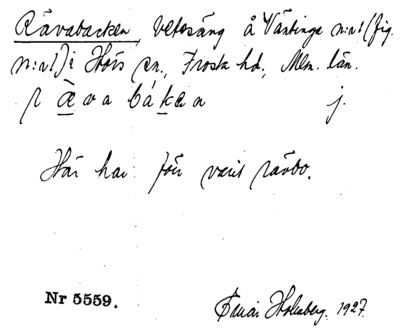 Rävabacken, betesäng å Väntinge n:o 1 (fig.
n:o 1) i Hörs sn., Frosta hd., Mlm. län.
r ǟ v a b á k e n j.
Här har förr varit rävbo.
Nr 5559.
Holmberg. 1927.